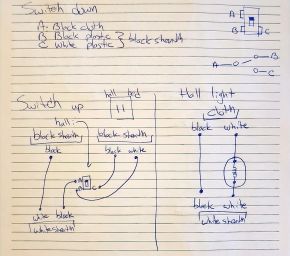 Switch down
A: Black cloth
B Black plastic } black sheath
C White plastic
A
B
C
A
B
C
Switch up
hall
Hall light
hall:
cloth
black sheath
black sheath
black white
black
black white
A
B
C
white black
black white
white sheath
white sheath